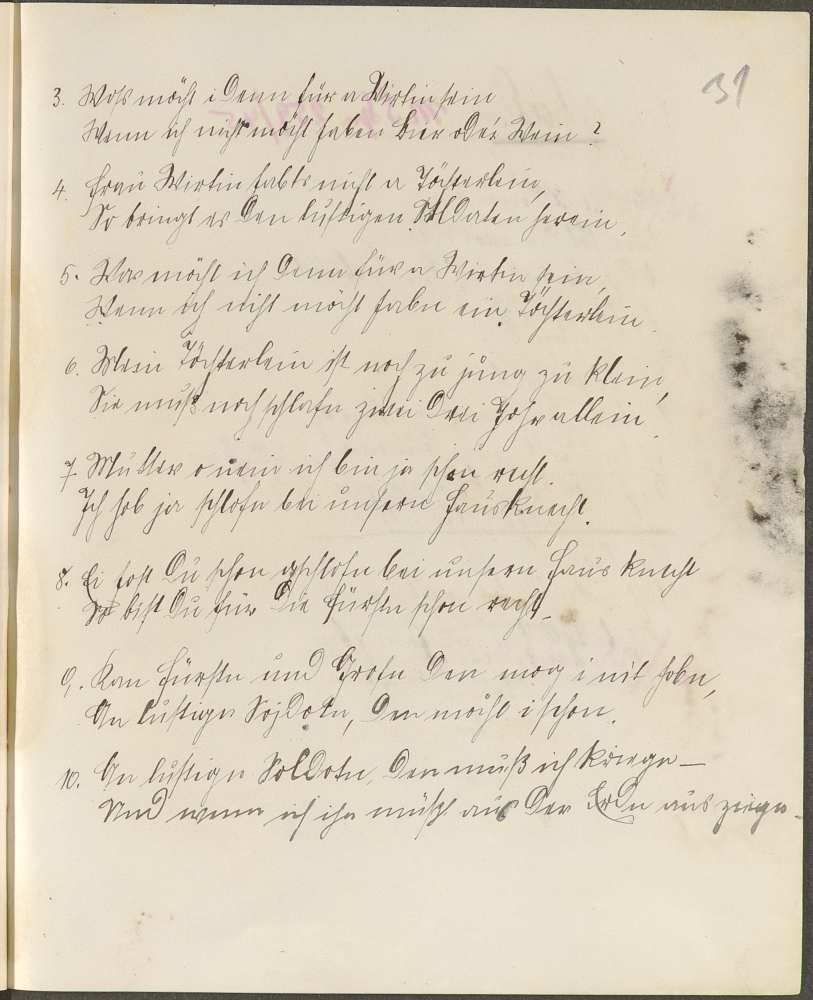 31
3. Wos möcht i denn für a Wirtin sein
Wenn ich nicht möcht haben Bier oder Wein?
4. Frau Wirtin habts nicht a Töchterlein,
So bringt es den lustigen Soldaten herein,
5. Was möcht ich denn für a Wirtin sein,
Wenn ich nicht möcht habn ein Töchterlein.
6. Mein Töchterlein ist noch zu jung zu klein,
Sie muß noch schlafn zwei drei Johr allein.
7. Mutter o nein ich bin ja schon recht.
Ich hob ja schlofn bei unsern Hausknecht.
8. Ei host du schon gschlofn bei unsern Haus knecht
So bist du für die Fürstn schon recht.
9. Kan Fürstn und Grofn den mog i nit hobn,
An lustign Sojdotn, den möcht i schon.
10. An lustign Soldotn, den muß ich kriegn –
Und wenn ich ihn müßt aus der Erdn aus ziegn.